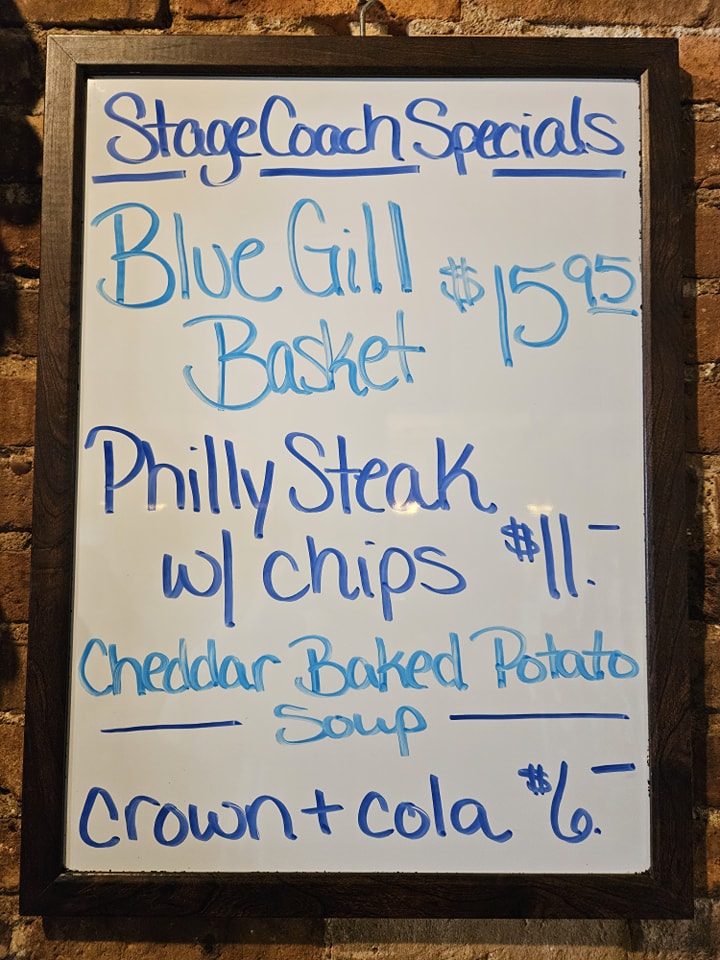 StageCoach Specials
Blue Gill
Basket $15 95
Philly Steak
w/ chips $11.–
Cheddar Baked Potato
Soup
Crown + cola $6.–